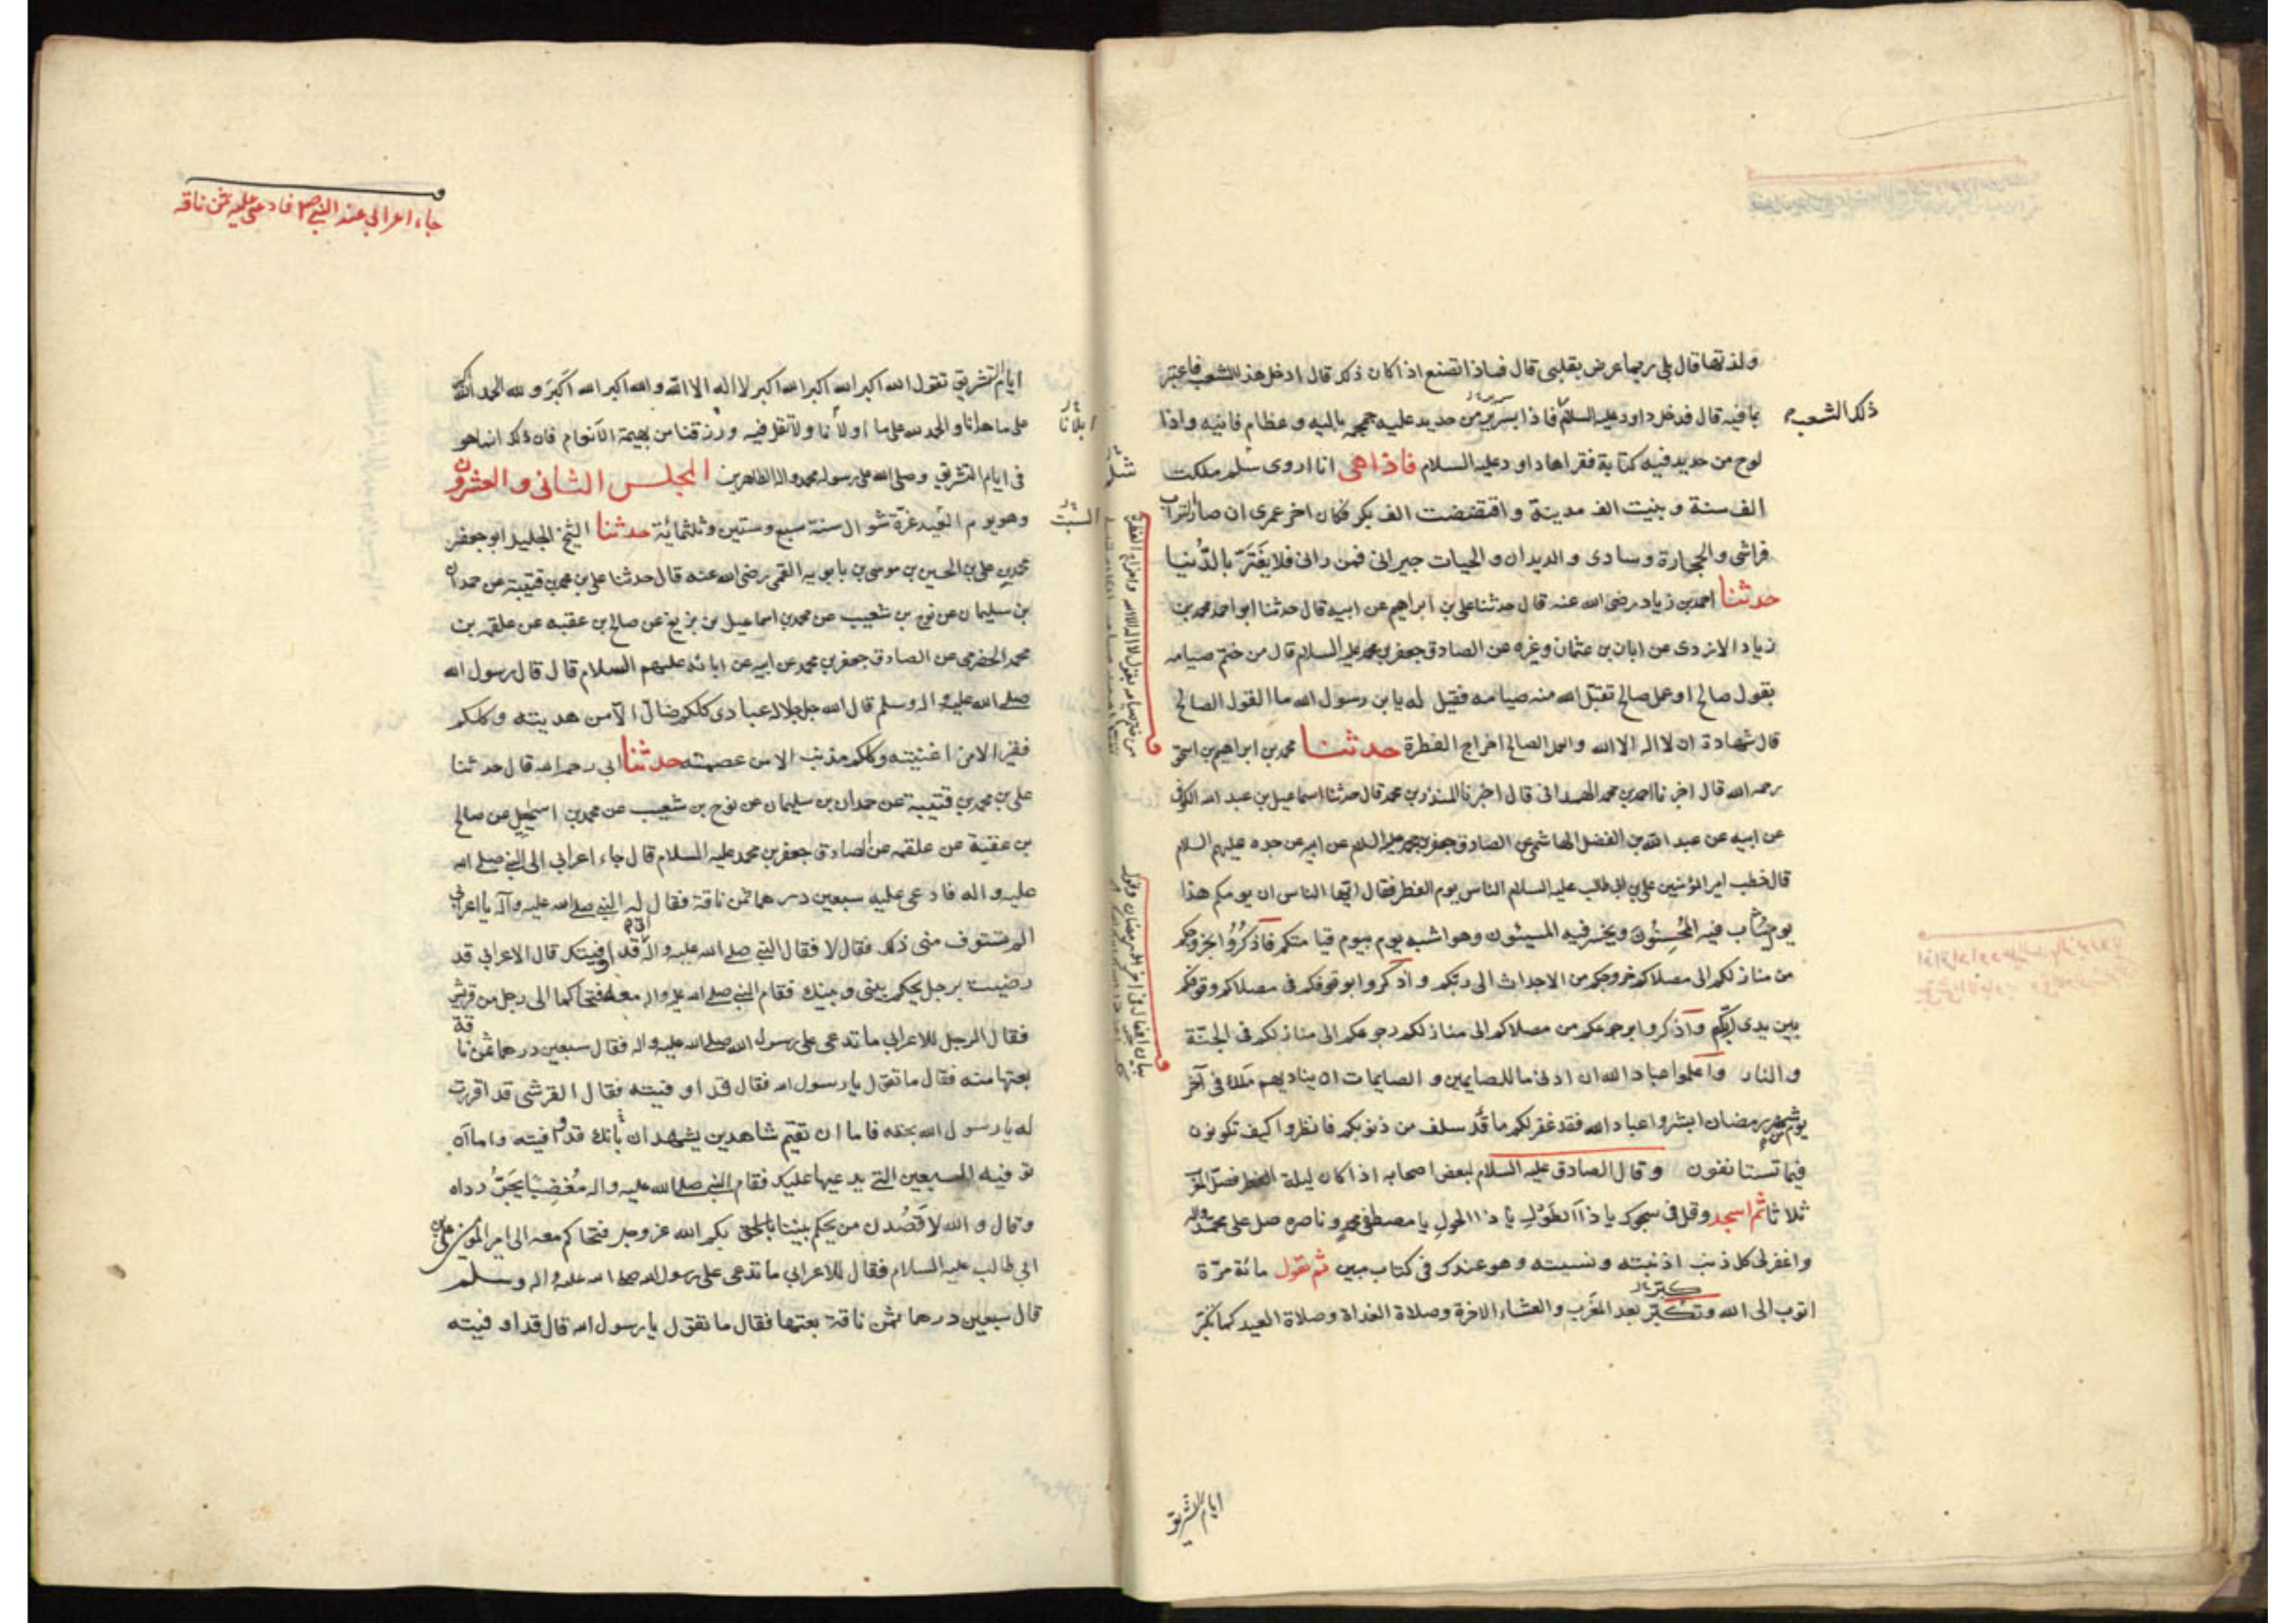 ولذتها قال بلى ربما عرض بقلبى قال فماذا تصنع اذا كان ذلك قال ادخل هذا الشعب فاعتبر
بما فيه قال فدخل داود عليه السلام فاذا بسرير من حديد عليه جمجمة بالية و عظام فانيه واذا
ذلك الشعب
لوح من حديد فيه كتابة فقراها داود عليه السلام فاذا هى انا اروى سلم ملكت
الف سنة و بنيت الف مدينة و افتضضت الف بكر فكان اخر عمرى ان صار التراب
فراشى والحجارة وسادى و الديدان و الحيات جيرانى فمن رانى فلا يغتر بالدنيا
حدثنا احمد بن زياد رضى الله عنه قال حدثنا على بن ابراهيم عن ابيه قال حدثنا ابو احمد محمد بن
زياد الازدى عن ابان بن عثمان وغيره عن الصادق جعفر بن محمد عليه السلام قال من ختم صيامه
بقول صالح او عمل صالح تقبل الله منه صيامه فقيل له يا بن رسول الله ما القول الصالح
قال شهادة ان لا اله الا الله والعمل الصالح اخراج الفطرة حدثنا محمد بن ابراهيم بن اسحق
رحمه الله قال اخبرنا احمد بن محمد الهمدانى قال اخبرنا المنذر بن محمد قال حدثنا اسماعيل بن عبد الله الكوفى
عن ابيه عن عبد الله بن الفضل الهاشمى عن الصادق جعفر بن محمد عليه السلام عن ابيه عن جده عليهم السلام
قال خطب امير المؤمنين على بن ابى طالب عليه السلام الناس يوم الفطر فقال ايها الناس ان يومكم هذا
يوم يثاب فيه المحسنون ويخسر فيه المسيئون وهو اشبه يوم بيوم قيامتكم فاذكروا بخروجكم
من منازلكم الى مصلاكم خروجكم من الاجداث الى ربكم و اذكروا بوقوفكم فى مصلاكم وقوفكم
بين يدى ربكم واذكروا برجوعكم من مصلاكم الى منازلكم رجوعكم الى منازلكم فى الجنة
و النار واعلموا عباد الله ان ادنى ما للصايمين و الصايمات ان يناديهم ملك فى آخر
يوم من شهر رمضان ابشروا عباد الله فقد غفر لكم ما قد سلف من ذنوبكم فانظروا كيف تكونون
فيما تستانفون وقال الصادق عليه السلام لبعض اصحابه اذا كان ليلة الفطر فصل المغرب
ثلاثا ثم اسجد وقل فى سجودك يا ذا الطول يا ذا الحول يا مصطفى محمد و ناصره صل على محمد واله
واغفر لى كل ذنب اذنبته ونسيته وهو عندك فى كتاب مبين ثم تقول مائة مرة
اتوب الى الله وتكبر بعد المغرب والعشاء الاخرة وصلاة الغداة وصلاة العيد كما تكبر
ايام التشريق
جاء اعرابى عند النبى ص فادعى عليه ثمن ناقه
ايام التشريق تقول الله اكبر الله اكبر لا اله الا الله و الله اكبر الله اكبر و لله الحمد الله اكبر
على ما هدانا و الحمد لله على ما اولانا ولا تقل فيه ورزقنا من بهيمة الانعام فان ذلك انما هو
ابلانا
فى ايام التشريق وصلى الله على رسوله محمد واله الطاهرين المجلس الثانى و العشرون
وهو يوم العيد غرة شوال سنة سبع وستين وثلثمائة حدثنا الشيخ الجليل ابو جعفر
السبت
محمد بن على بن الحسين بن موسى بن بابويه القمى رضى الله عنه قال حدثنا على بن محمد بن قتيبة عن حمدان
بن سليمان عن نوح بن شعيب عن محمد بن اسماعيل بن بزيع عن صالح بن عقبه عن علقمه بن
محمد الحضرمى عن الصادق جعفر بن محمد عن ابيه عن ابائه عليهم السلام قال قال رسول الله
صلى الله عليه واله وسلم قال الله جل جلاله عبادى كلكم ضال الا من هديته وكلكم
فقير الا من اغنيته وكلكم مذنب الا من عصمته حدثنا ابى رحمه الله قال حدثنا
على بن محمد بن قتيبة عن حمدان بن سليمان عن نوح بن شعيب عن محمد بن اسمعيل عن صالح
بن عقبة عن علقمه عن الصادق جعفر بن محمد عليه السلام قال جاء اعرابى الى النبى صلى الله
عليه واله فادعى عليه سبعين درهما ثمن ناقة فقال له النبى صلى الله عليه وآله يا اعرابى
الم تستوف منى ذلك فقال لا فقال النبى صلى الله عليه واله قد اوفيتك قال الاعرابى قد
رضيت برجل يحكم بينى و بينك فقام النبى صلى الله عليه واله معه فتحاكما الى رجل من قريش
فقال الرجل للاعرابى ما تدعى على رسول الله صلى الله عليه واله فقال سبعين درهما ثمن ناقة
بعتها منه فقال ما تقول يا رسول الله فقال قد اوفيته فقال القرشى قد اقررت
له يا رسول الله بحقه فاما ان تقيم شاهدين يشهدان بانك قد اوفيته واما ان
توفيه السبعين التى يدعيها عليك فقام النبى صلى الله عليه واله مغضبا يجر رداه
وقال و الله لاقصدن من يحكم بيننا بحكم الله عز وجل فتحاكم معه الى امير المؤمنين على بن
ابى طالب عليه السلام فقال للاعرابى ما تدعى على رسول الله صلى الله عليه واله وسلم
قال سبعين درهما ثمن ناقة بعتها فقال ما تقول يا رسول الله قال قد اوفيته